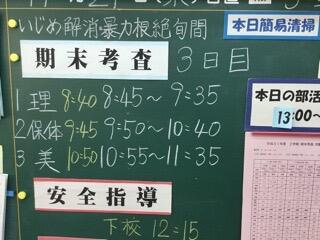 いじめ解消暴力根絶旬間
本日簡易清掃
期末考査 3日目
1 理 8:40 8:45〜9:35
2 保体 9:45 9:50〜10:40
3 美 10:50 10:55〜11:35
本日の部活
13:00〜
安全指導
下校 12:15